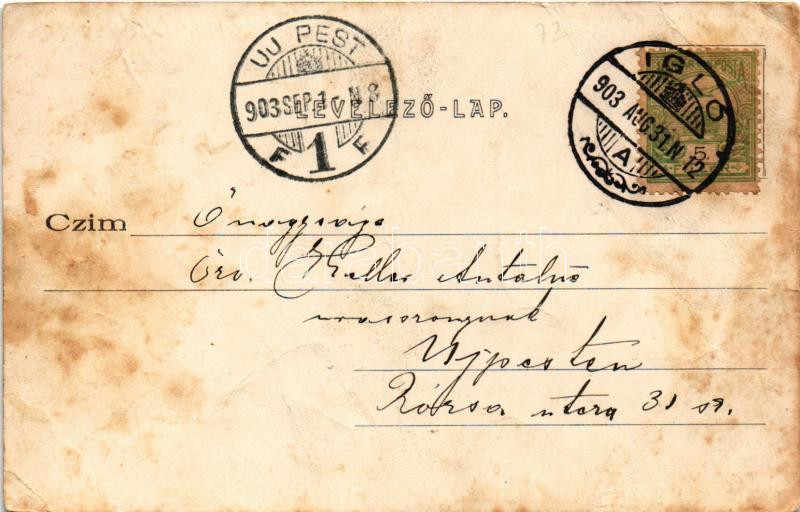 72
UJ PEST
903 SEP. 1 - N 8
F 1 F
IGLÓ
903 AUG. 31. N 12
A
5
POSTA
LEVELEZŐ-LAP.
Czim Őnagysága
Özv. Keller Antalné
urasszonynak
Ujpesten
Rózsa utcza 31 sz.
darabanth